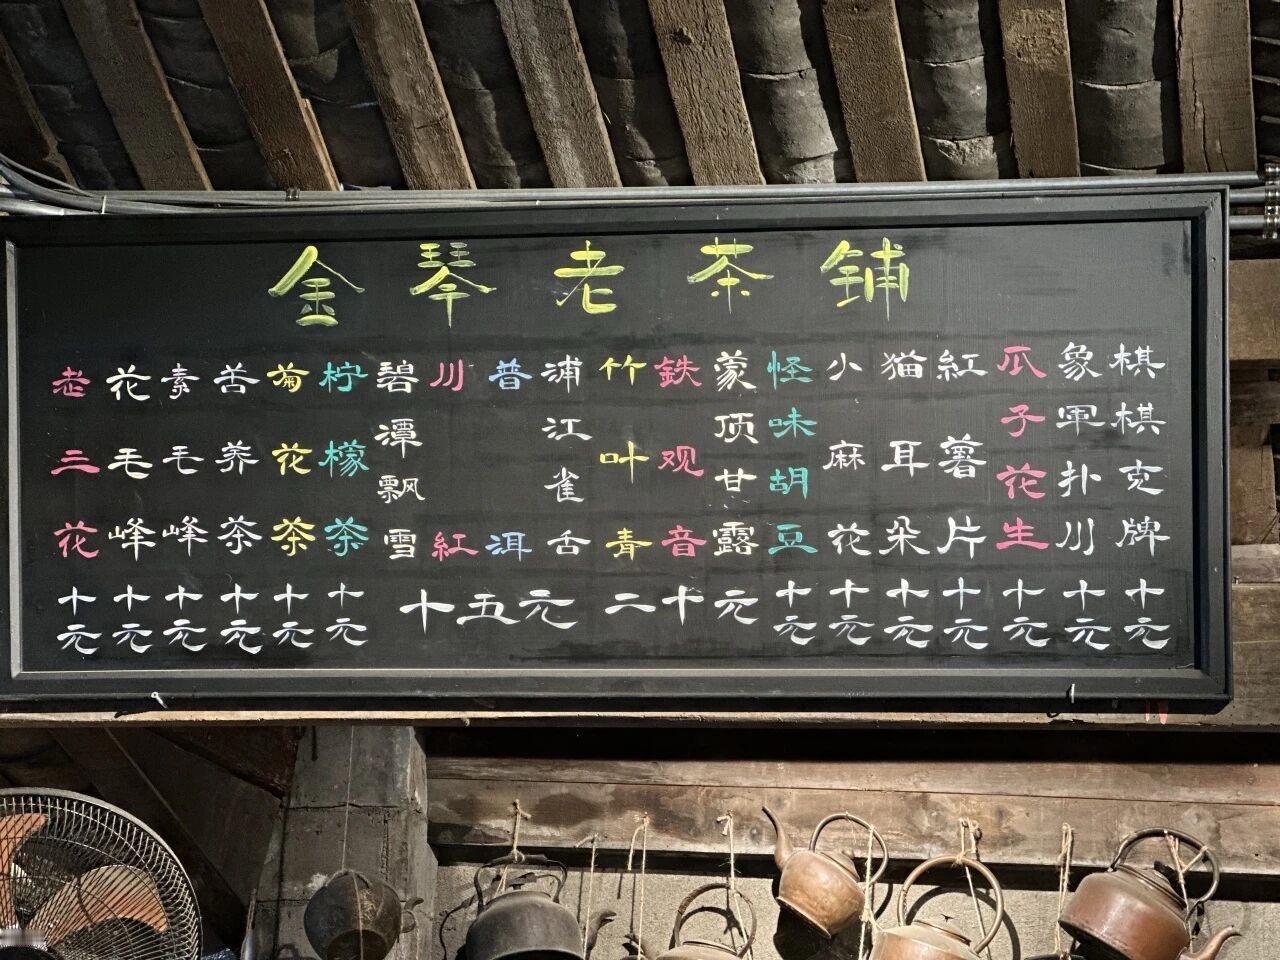 金琴老茶铺
老三花 十元
花毛峰 十元
素毛峰 十元
苦养茶 十元
菊花茶 十元
柠檬茶 十元
碧潭飘雪
川紅
普洱
浦江雀舌
十五元
竹叶青
鉄观音
蒙顶甘露
二十元
怪味胡豆 十元
小麻花 十元
猫耳朵 十元
紅薯片 十元
瓜子花生 十元
象棋
軍棋
扑克
川牌
十元 十元